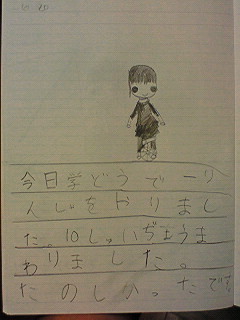 今日学どうで一り
んしゃをやりまし
た。10しゅいぢょうま
わりました。
たのしかったです